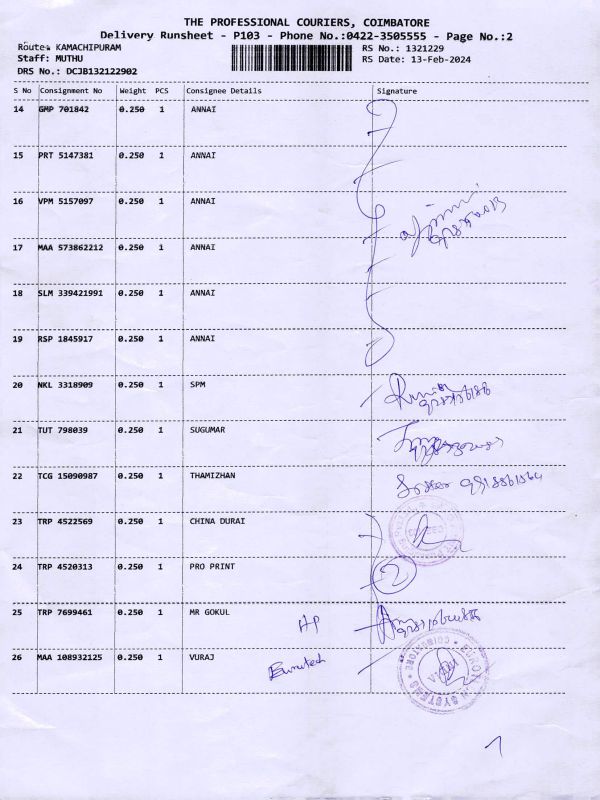 THE PROFESSIONAL COURIERS, COIMBATORE
Delivery Runsheet - P103 - Phone No.:0422-3505555 - Page No.:2
Route: KAMACHIPURAM RS No.: 1321229
Staff: MUTHU RS Date: 13-Feb-2024
DRS No.: DCJB132122902
S No Consignment No Weight PCS Consignee Details Signature
14 GMP 701842 0.250 1 ANNAI
15 PRT 5147381 0.250 1 ANNAI
16 VPM 5157097 0.250 1 ANNAI
17 MAA 573862212 0.250 1 ANNAI
18 SLM 339421991 0.250 1 ANNAI
19 RSP 1845917 0.250 1 ANNAI
20 NKL 3318909 0.250 1 SPM
21 TUT 798039 0.250 1 SUGUMAR
22 TCG 15090987 0.250 1 THAMIZHAN
23 TRP 4522569 0.250 1 CHINA DURAI
24 TRP 4520313 0.250 1 PRO PRINT 2
25 TRP 7699461 0.250 1 MR GOKUL AP
26 MAA 108932125 0.250 1 VURAJ
COIMBATORE
SYSTEMS